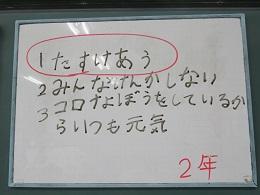 1たすけあう
2みんなけんかしない
3コロナよぼうをしているか
らいつも元気
2年